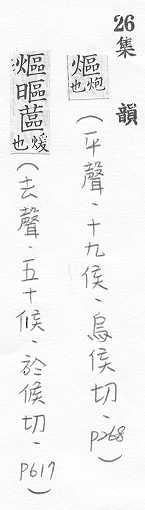 26
集韻
熰炮也(平聲、十九侯、烏侯切、p268)
熰䁱蓲煖也(去聲、五十候、於候切、p617)